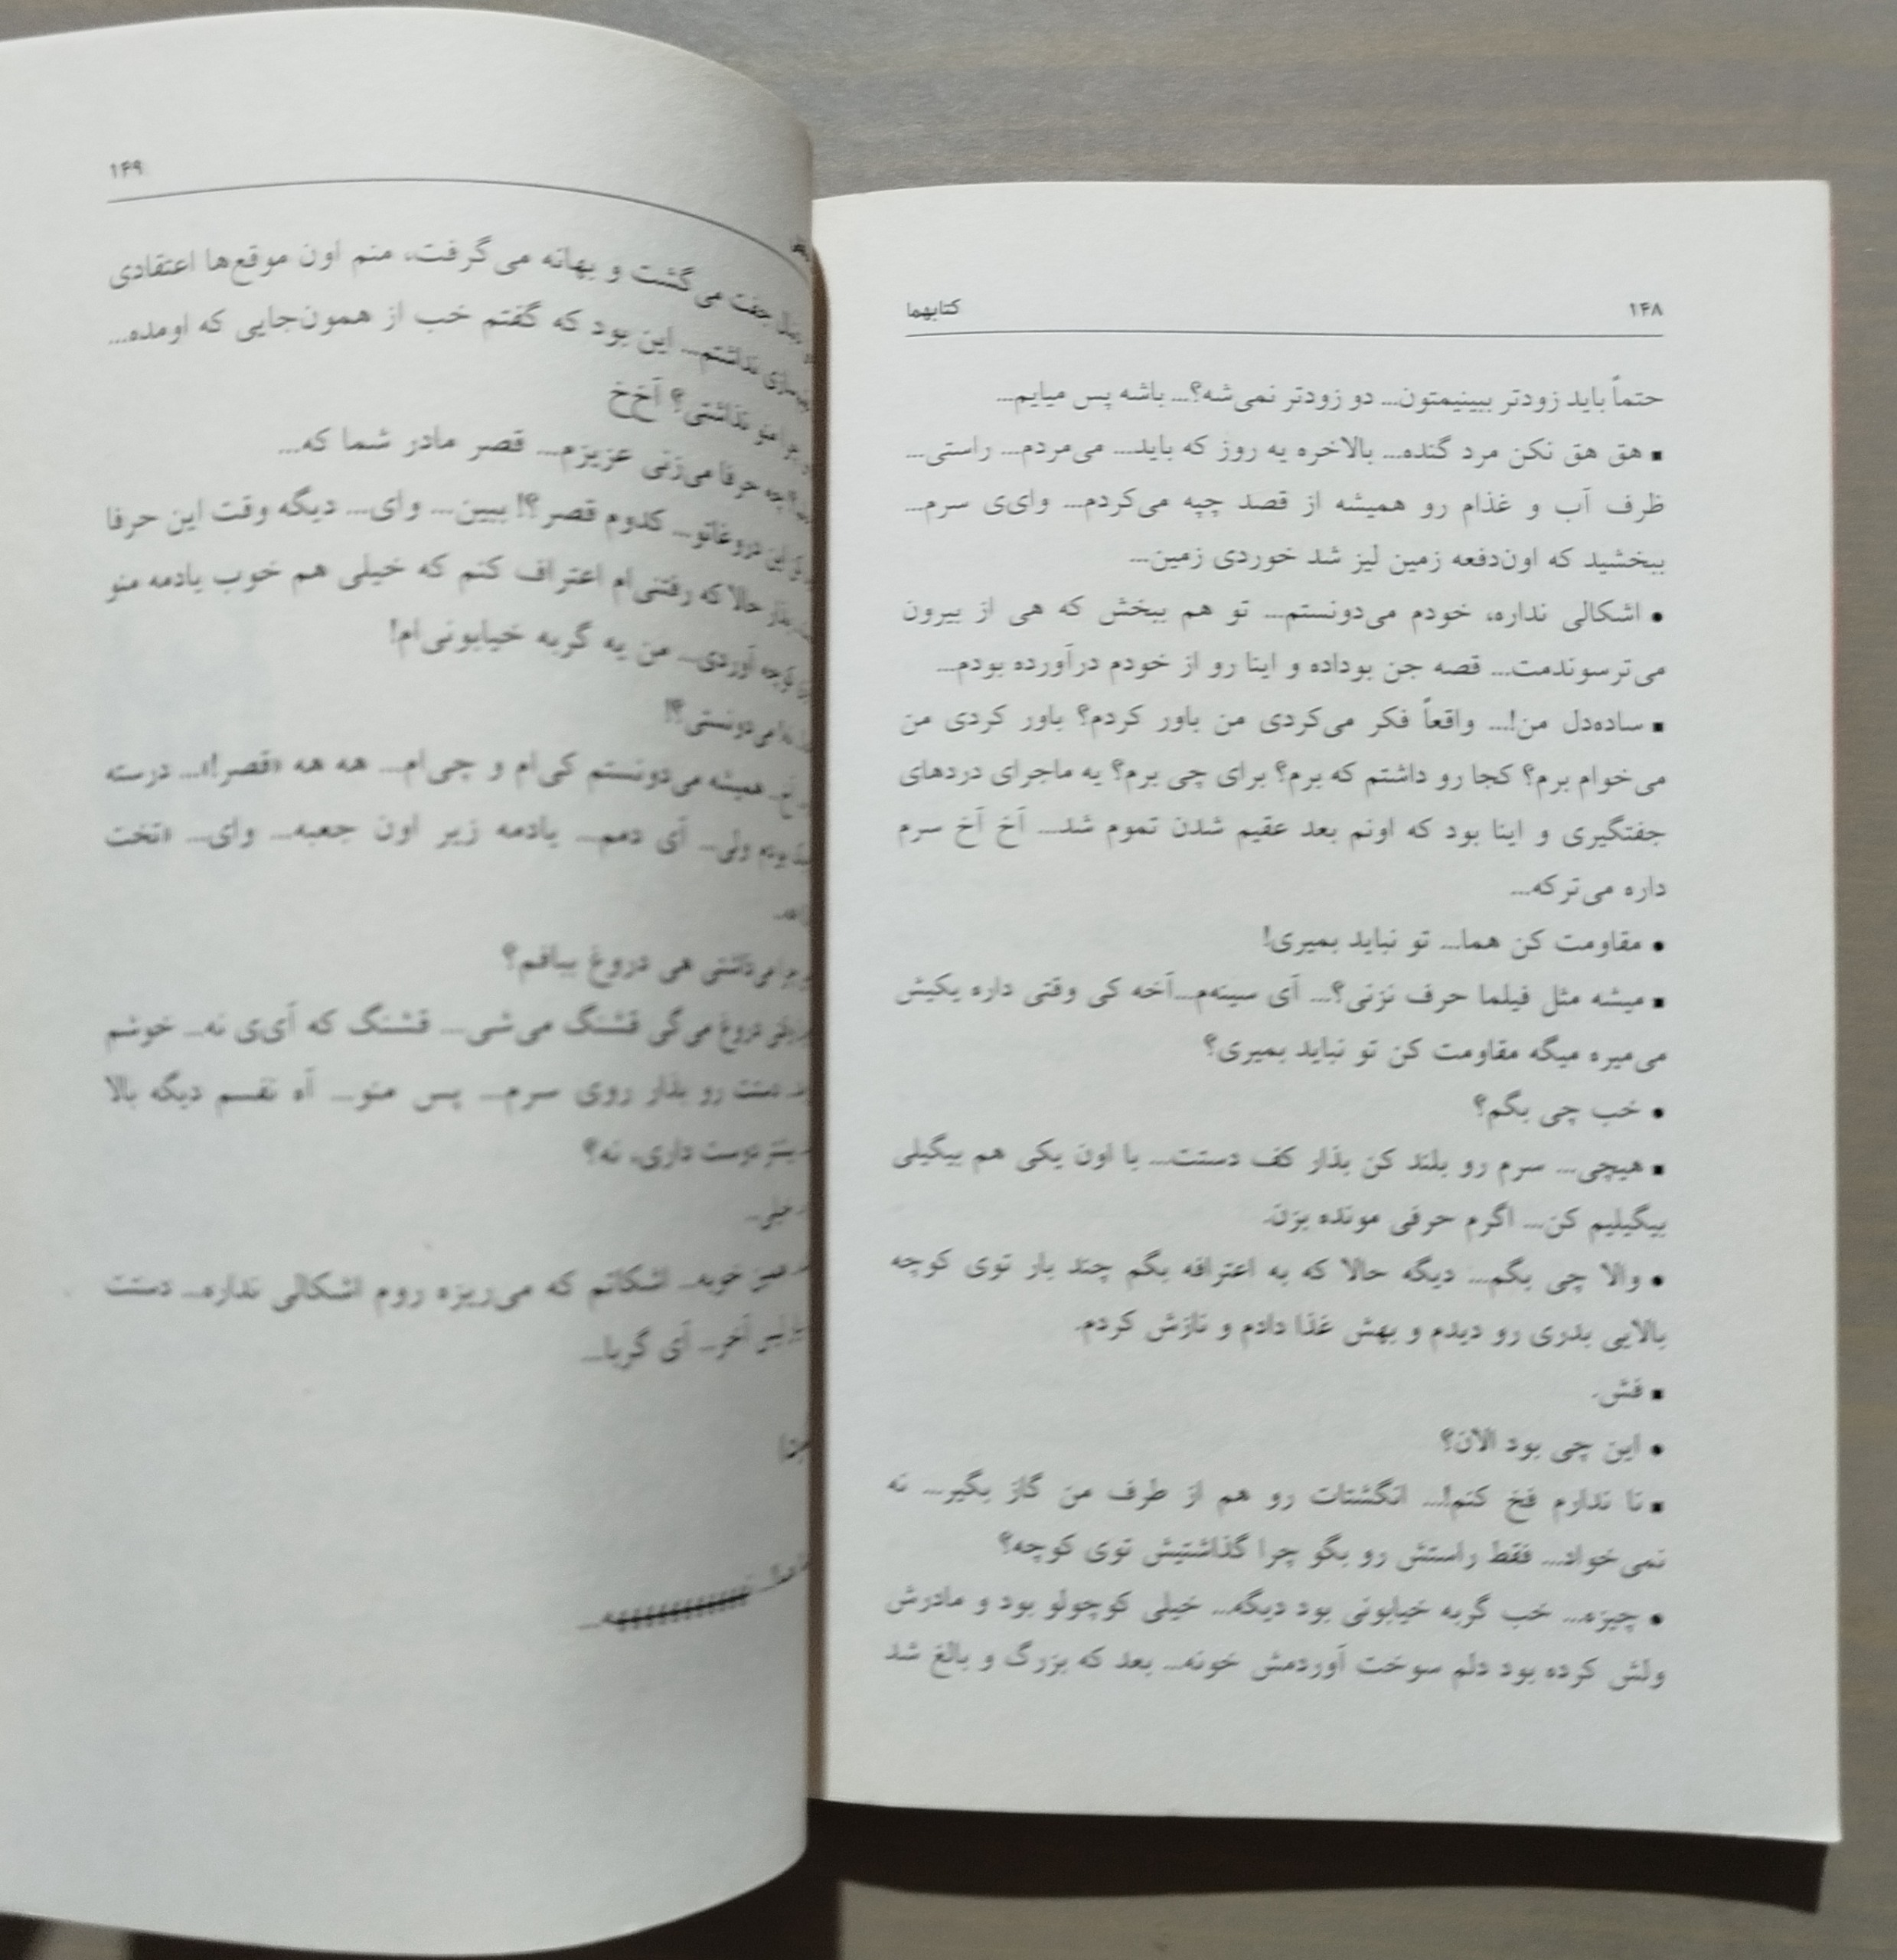 ۱۴۸
کتابهما
حتماً باید زودتر ببینیمتون... دو زودتر نمی‌شه؟... باشه پس میایم...
▪ هق هق نکن مرد گنده... بالاخره یه روز که باید... می‌مردم... راستی...
ظرف آب و غذام رو همیشه از قصد چپه می‌کردم... وای‌ی سرم...
ببخشید که اون‌دفعه زمین لیز شد خوردی زمین...
• اشکالی نداره، خودم می‌دونستم... تو هم ببخش که هی از بیرون
می‌ترسوندمت... قصه جن بوداده و اینا رو از خودم درآورده بودم...
▪ ساده‌دل من!... واقعاً فکر می‌کردی من باور کردم؟ باور کردی من
می‌خوام برم؟ کجا رو داشتم که برم؟ برای چی برم؟ یه ماجرای دردهای
جفتگیری و اینا بود که اونم بعد عقیم شدن تموم شد... آخ آخ سرم
داره می‌ترکه...
• مقاومت کن هما... تو نباید بمیری!
▪ میشه مثل فیلما حرف نزنی؟... آی سینه‌م...آخه کی وقتی داره یکیش
می‌میره میگه مقاومت کن تو نباید بمیری؟
• خب چی بگم؟
▪ هیچی... سرم رو بلند کن بذار کف دستت... با اون یکی هم بیگیلی
بیگیلیم کن... اگرم حرفی مونده بزن.
• والا چی بگم... دیگه حالا که به اعترافه بگم چند بار توی کوچه
بالایی بدری رو دیدم و بهش غذا دادم و نازش کردم.
▪ فش.
• این چی بود الان؟
▪ نا ندارم فخ کنم!... انگشتات رو هم از طرف من گاز بگیر... نه
نمی‌خواد... فقط راستش رو بگو چرا گذاشتیش توی کوچه؟
• چیزه... خب گربه خیابونی بود دیگه... خیلی کوچولو بود و مادرش
ولش کرده بود دلم سوخت آوردمش خونه... بعد که بزرگ و بالغ شد
۱۴۹
جفت می‌گشت و بهانه می‌گرفت، منم اون موقع‌ها اعتقادی
نداشتم... این بود که گفتم خب از همون‌جایی که اومده...
منو نذاشتی؟ آخ‌خ
چه حرفا می‌زنی عزیزم... قصر مادر شما که...
این دروغاتو... کدوم قصر؟! ببین... وای... دیگه وقت این حرفا
حالا که رفتنی‌ام اعتراف کنم که خیلی هم خوب یادمه منو
کوچه آوردی... من یه گربه خیابونی‌ام!
می‌دونستی؟!
همیشه می‌دونستم کی‌ام و چی‌ام... هه هه «قصر!»... درسته
ولی... آی دمم... یادمه زیر اون جعبه... وای... «تخت
هی دروغ ببافم؟
دروغ می‌گی قشنگ می‌شی... قشنگ که آی‌ی نه... خوشم
دستت رو بذار روی سرم... پس منو... آه نفسم دیگه بالا
دوست داری، نه؟
خیلی...
همین خوبه... اشکاتم که می‌ریزه روم اشکالی نداره... دستت
آخر... آی گربا...